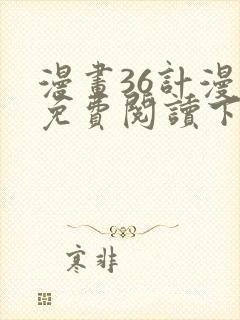 漫畫36計漫
免費閱讀下
寒非